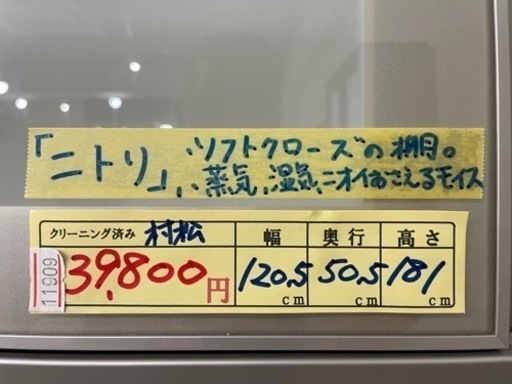 「ニトリ」、ソフトクローズの棚。
蒸気、湿気、ニオイおさえるモイス
クリーニング済み 村松 幅 奥行 高さ
11909 39,800円 120.5cm 50.5cm 181cm